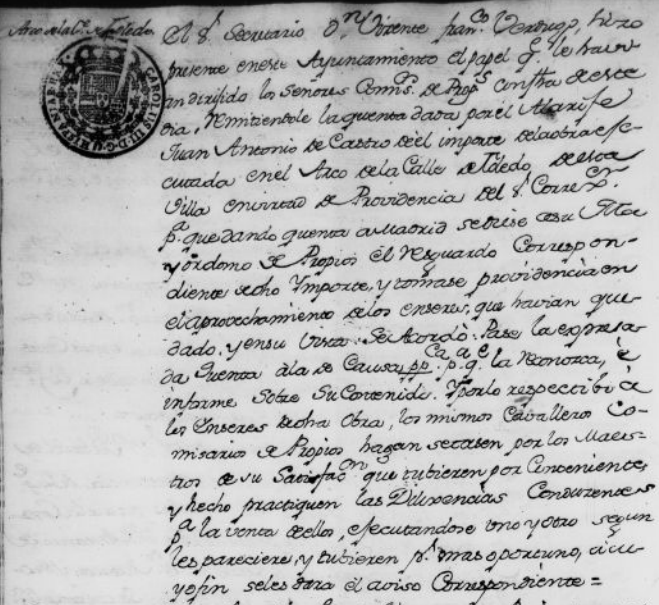 Arco de la Calle de Toledo.
CAROLUS III D. G. HISPANIAR. REX
El Sr. Secretario Dn. Vicente Franco. Verdugo, hizo
presente en este Ayuntamiento el papel qe. le havi-
an dirijido los Señores Comis. de Props. con fha de este
dia, remitiendole la quenta dada por el Alarife
Juan Antonio de Castro de el importe de la obra efe-
cutada en el Arco de la Calle de Toledo de esta
Villa en virtud de Providencia del Sr. Correxr.
pa. que dando quenta a Madrid se diese a su Ma-
yordomo de Propios el resguardo Correspon-
diente de dho Ymporte, y tomase providencia en
el aprovechamiento de los enseres, que havian que-
dado. y en su vista. Se Acordò. Pase la expresa-
da Quenta a la de Causa pp.ca pa. qe. la reconozca, è
informe sobre su Contenido. Y por lo respectibo à
los Enseres de dha Obra, los mismos Cavalleros Co-
misarios de Propios hagan se tasen por los Maes-
tros de su Satisfacn. que tubieren por Combeniente,
y hecho practiquen las Dilixencias Conducentes
pa. la venta de ellos, efecutandose uno y otro segun
les pareciere, y tubieren pr. mas oportuno, à cu-
yo fin se les dara el aviso Correspondiente=